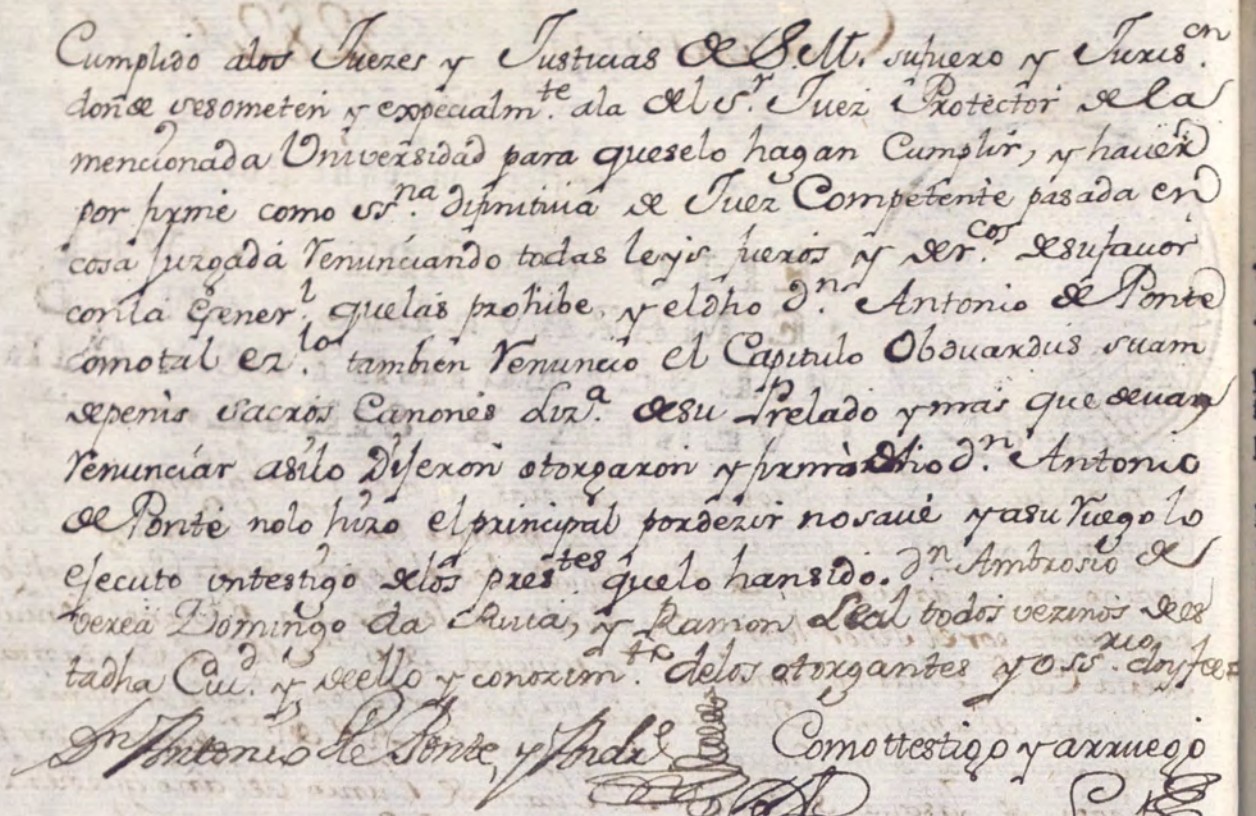 Cumplido alos Juezes y Justicias de S.M. sufuero y Juris.on
donde sesometen y expecialm.te ala del S.r Juez Protector de la
mencionada Universidad para queselo hagan Cumplir, y haver
por firme como ss.na difinitiva de Juez Competente pasada en
cosa juzgada renunciando todas leyis fueros y der.cos desufavor
conla Gener.l quelas prohibe, y eldho d.n Antonio de Ponte
comotal ez.lo tambien renuncio el Capitulo Obduardus suam
depenis sacros Canones Liz.a desu Prelado ymas que devan
renunciar asilo dijeron otorgaron yfirmò dho d.n Antonio
de Ponte nolo hizo elprincipal pordezir nosave yasu ruego lo
ejecuto untestigo delos pres.tes quelo hansido. d.n Ambrosio de
verea Domingo da Ruia, y Ramon Leal todos vezinos de es
tadha Ciu.d y deello yconozim.to delos otorgantes yo ss.rio doyfee=
Dn Antonio de Ponte, y Andr.e
Comottestigo yarruego